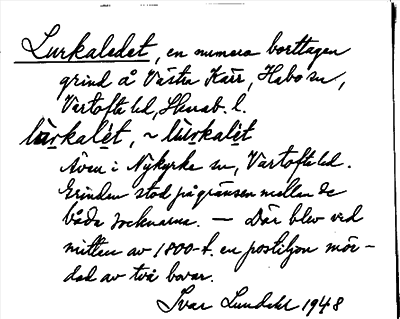 Lurkaledet, en numera borttagen
grind å Västra Kärr, Habo sn,
Vartofta hd, Skarab. l.
lùrkalèt, ~ lùrkalèt
Även i Nykyrke sn, Vartofta hd.
Grinden stod på gränsen mellan de
båda socknarna. — Där blev vid
mitten av 1800-t. en postiljon mör-
dad av två bovar.
Ivar Lundahl 1948